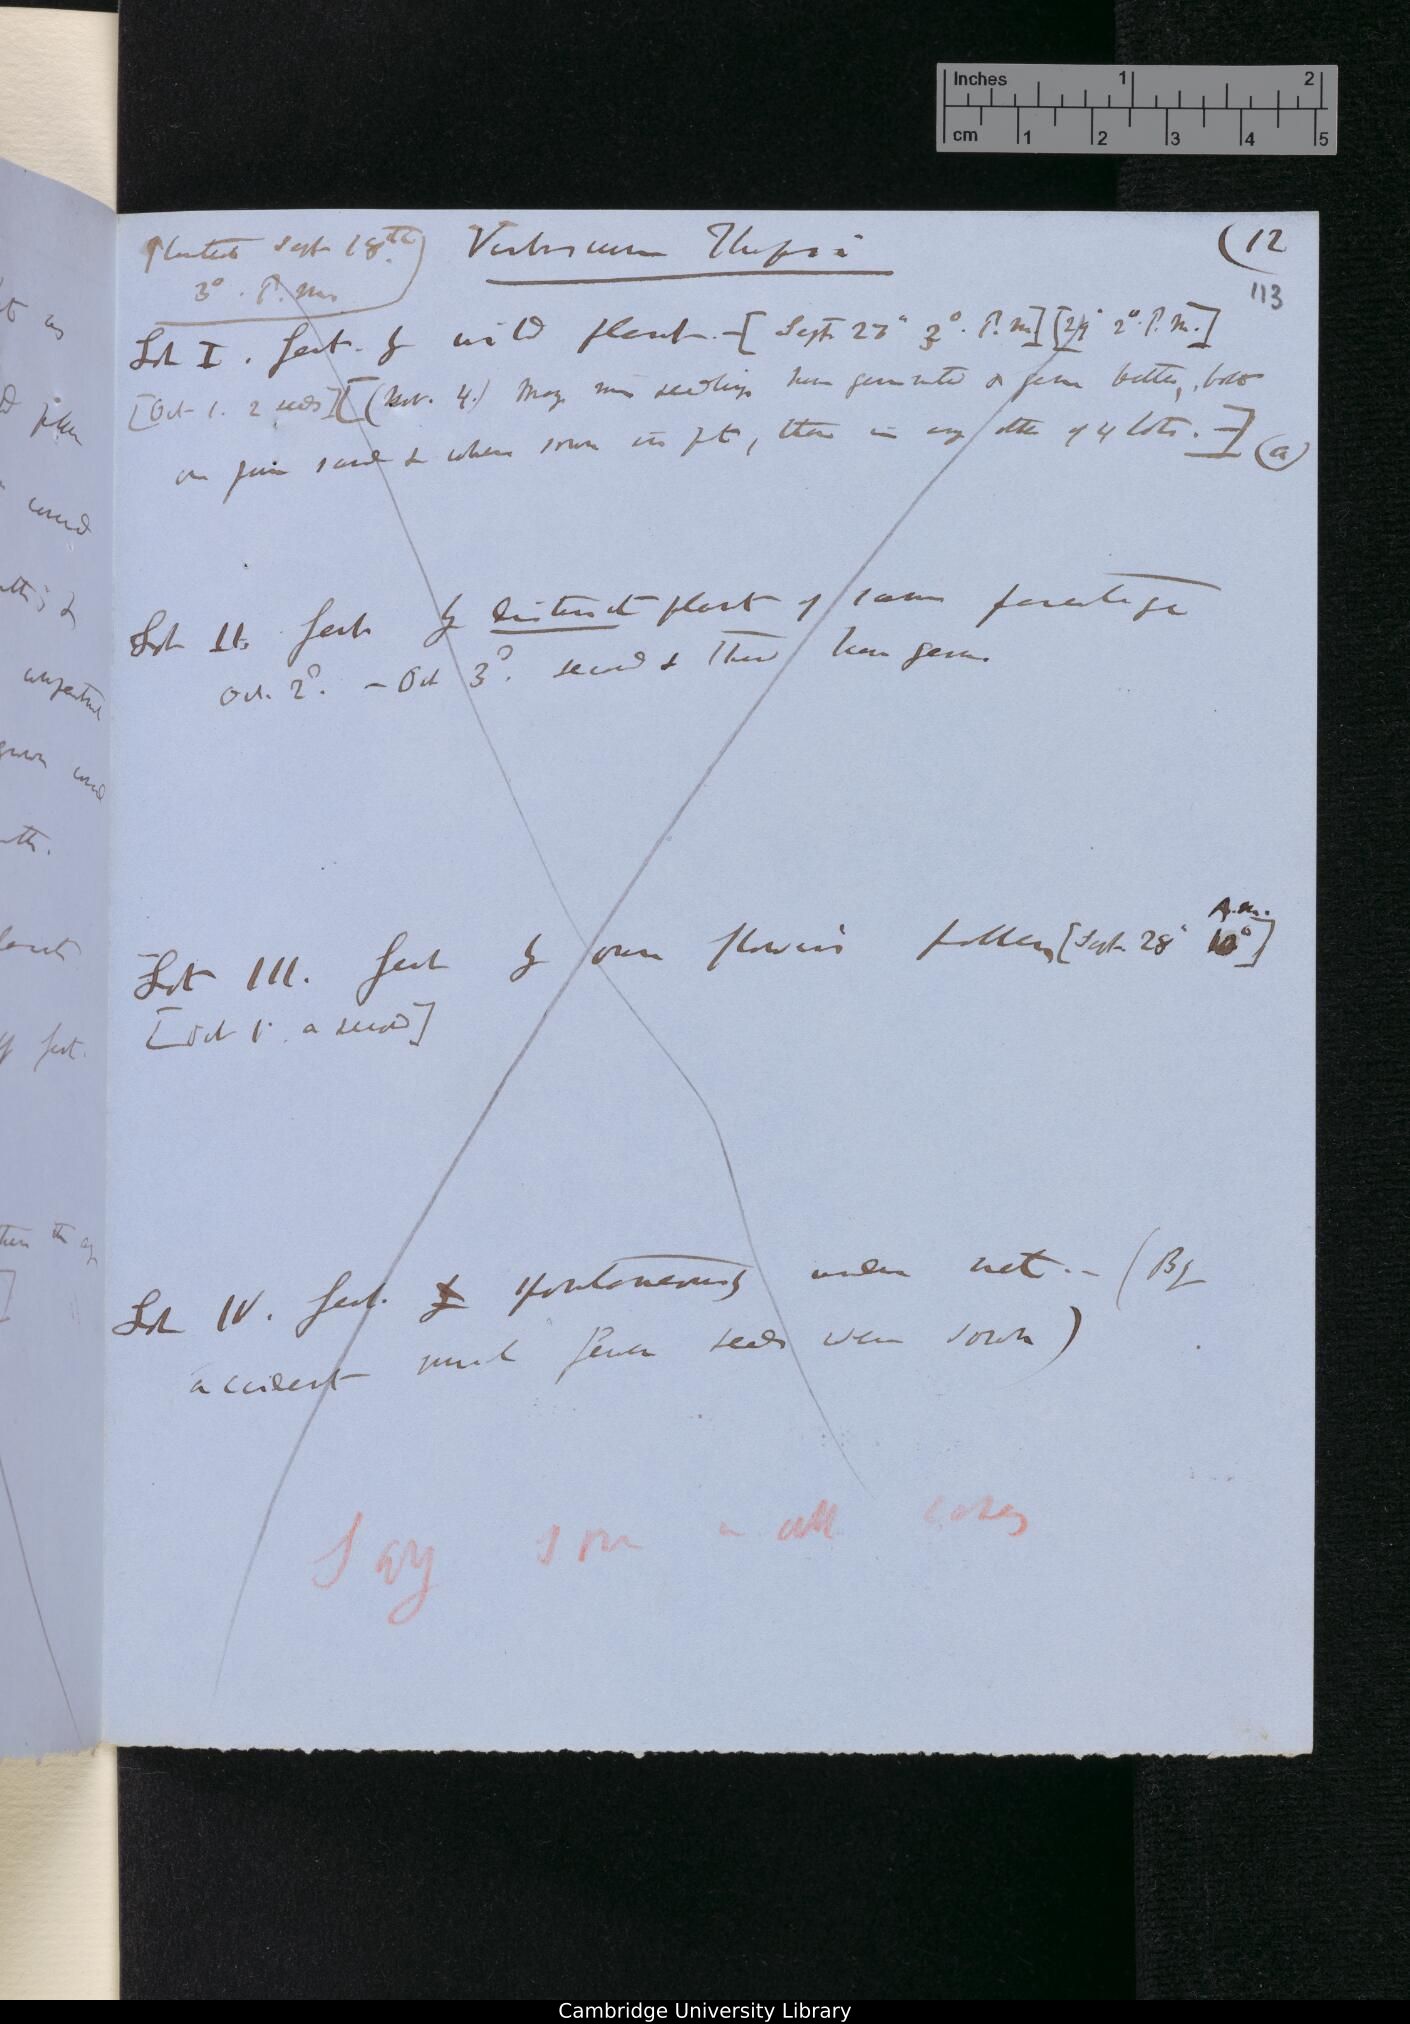 Planted Sept 18th
3°. P. m.
Verbascum Thapsus
(12
113
Lot I. fert. by wild plant.—[Sept 27° 3°. P. m] [29° 2°. P. m.]
[Oct 1. 2 seeds] [(Nov. 4.) Many more seedlings have germinated & grown better, both
on fine sand & when sown in pot, than in any other of 4 lots.—] (a)
Lot II. fert by distinct plant of same parentage
Oct. 2°. — Oct 3°. second & Third have germ.
Lot III. fert by own flower's pollen [Sept 28° 10° A.m.]
[Oct 1. a second]
Lot IV. fert. spontaneously under net.— (By
accident much fewer seeds were sown)
Say sown in all cases
Inches 1 2
cm 1 2 3 4 5
Cambridge University Library